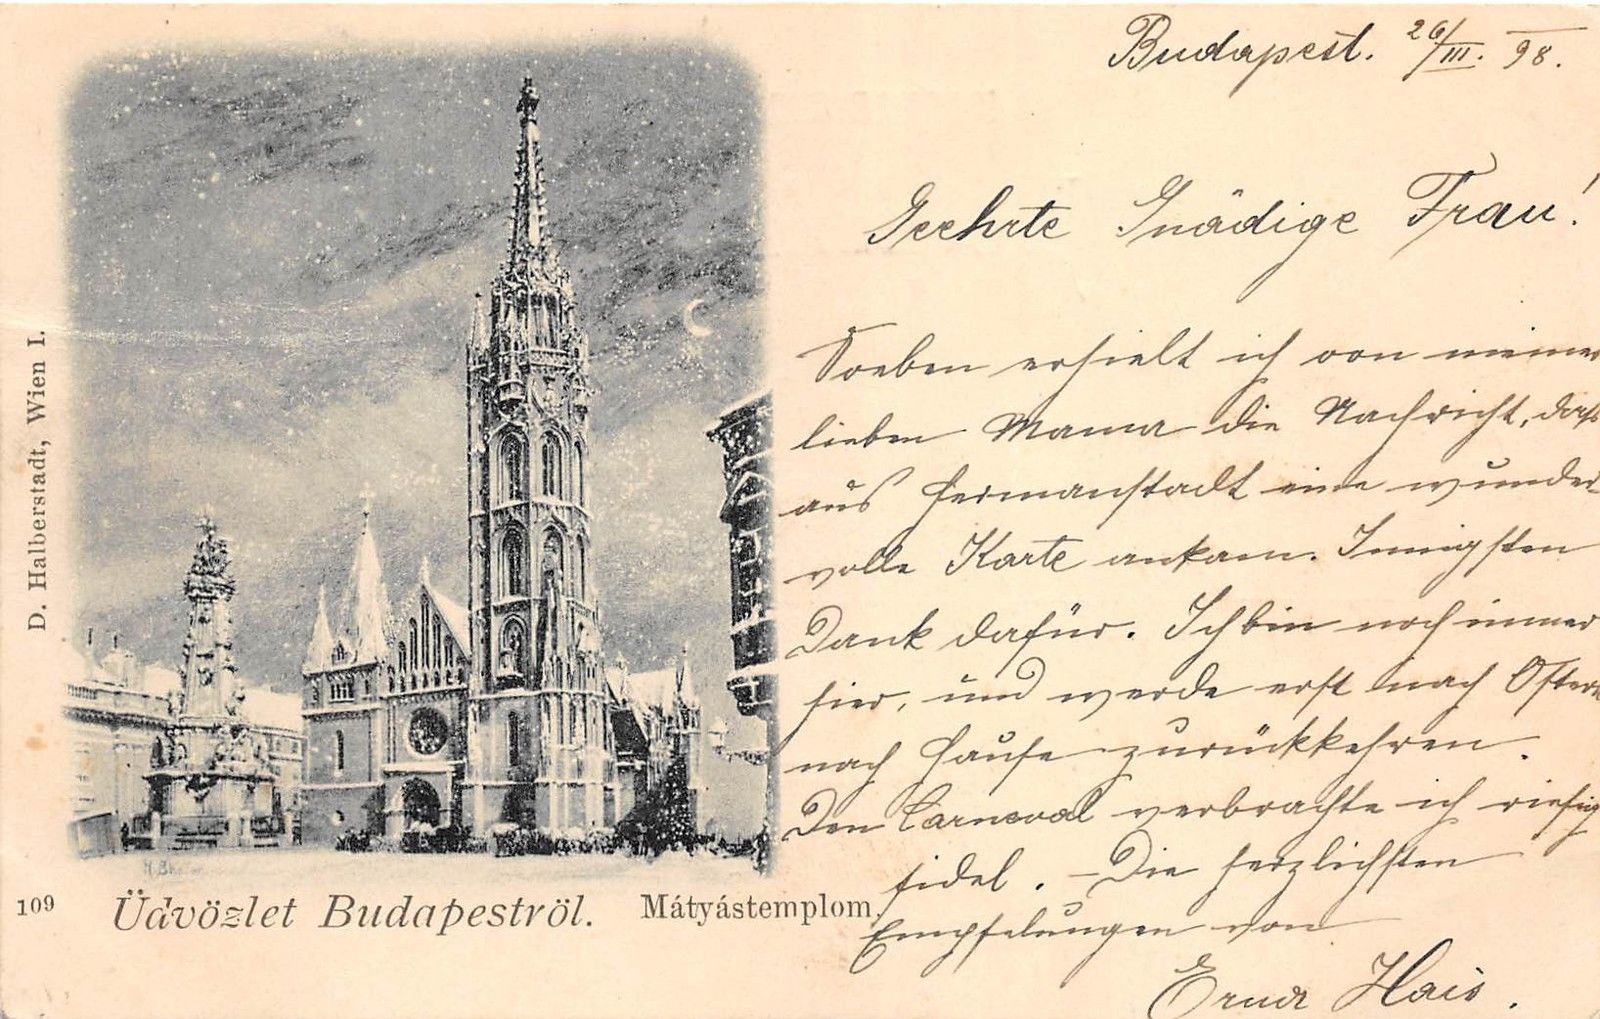 Budapest. 26/III. 98.
Geehrte Gnädige Frau!
Soeben erhielt ich von meiner
lieben Mama die Nachricht, daß
aus Hermanstadt eine wunder-
volle Karte ankam. Innigsten
Dank dafür. Ich bin noch immer
hier, und werde erst nach Ostern
nach Hause zurückkehren.
Den Carneval verbrachte ich riesig
fidel. – Die herzlichsten
Empfelungen von
Erna Hais.
D. Halberstadt, Wien I.
109 Üdvözlet Budapeströl. Mátyástemplom.